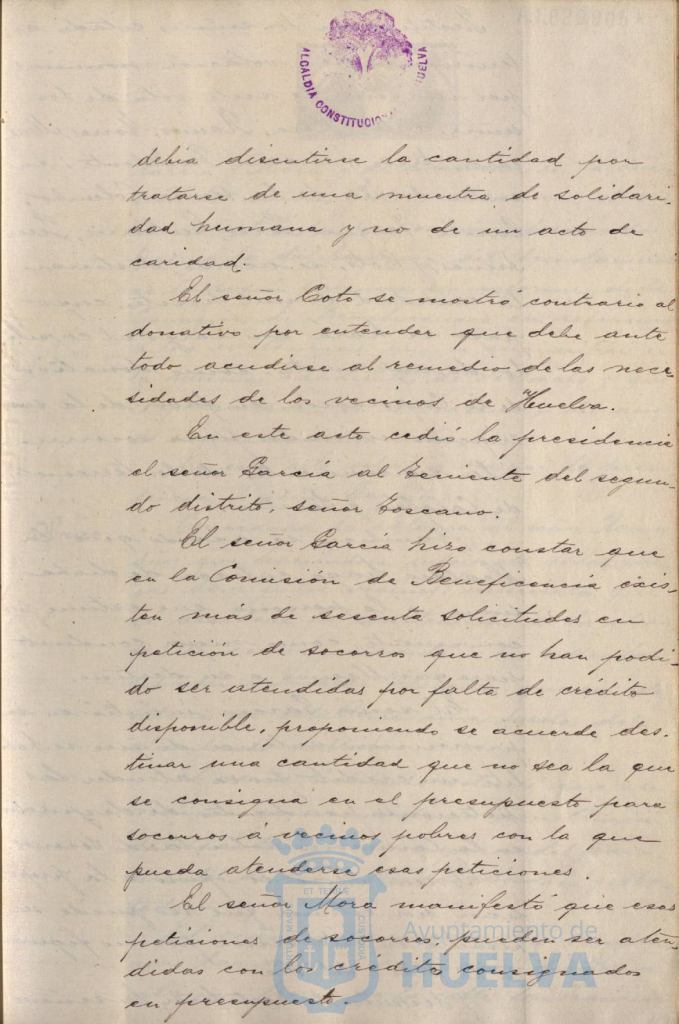 ALCALDIA CONSTITUCIO
debia discutirse la cantidad por
tratarse de una muestra de solidari-
dad humana y no de un acto de
caridad.
El señor Coto se mostró contrario al
donativo por entender que debe ante
todo acudirse al remedio de las nece-
sidades de los vecinos de Huelva.
En este acto cedió la presidencia
el señor García al Teniente del segun-
do distrito, señor Toscano.
El señor García hizo constar que
en la Comisión de Beneficencia exis-
ten más de sesenta solicitudes en
petición de socorros que no han podi-
do ser atendidas por falta de crédito
disponible, proponiendo se acuerde des-
tinar una cantidad que no sea la que
se consigna en el presupuesto para
socorros á vecinos pobres con la que
pueda atenderse esas peticiones.
El señor Mora manifestó que esas
peticiones de socorros, pueden ser aten-
didas con los créditos consignados
en presupuesto.
Ayuntamiento de
HUELVA